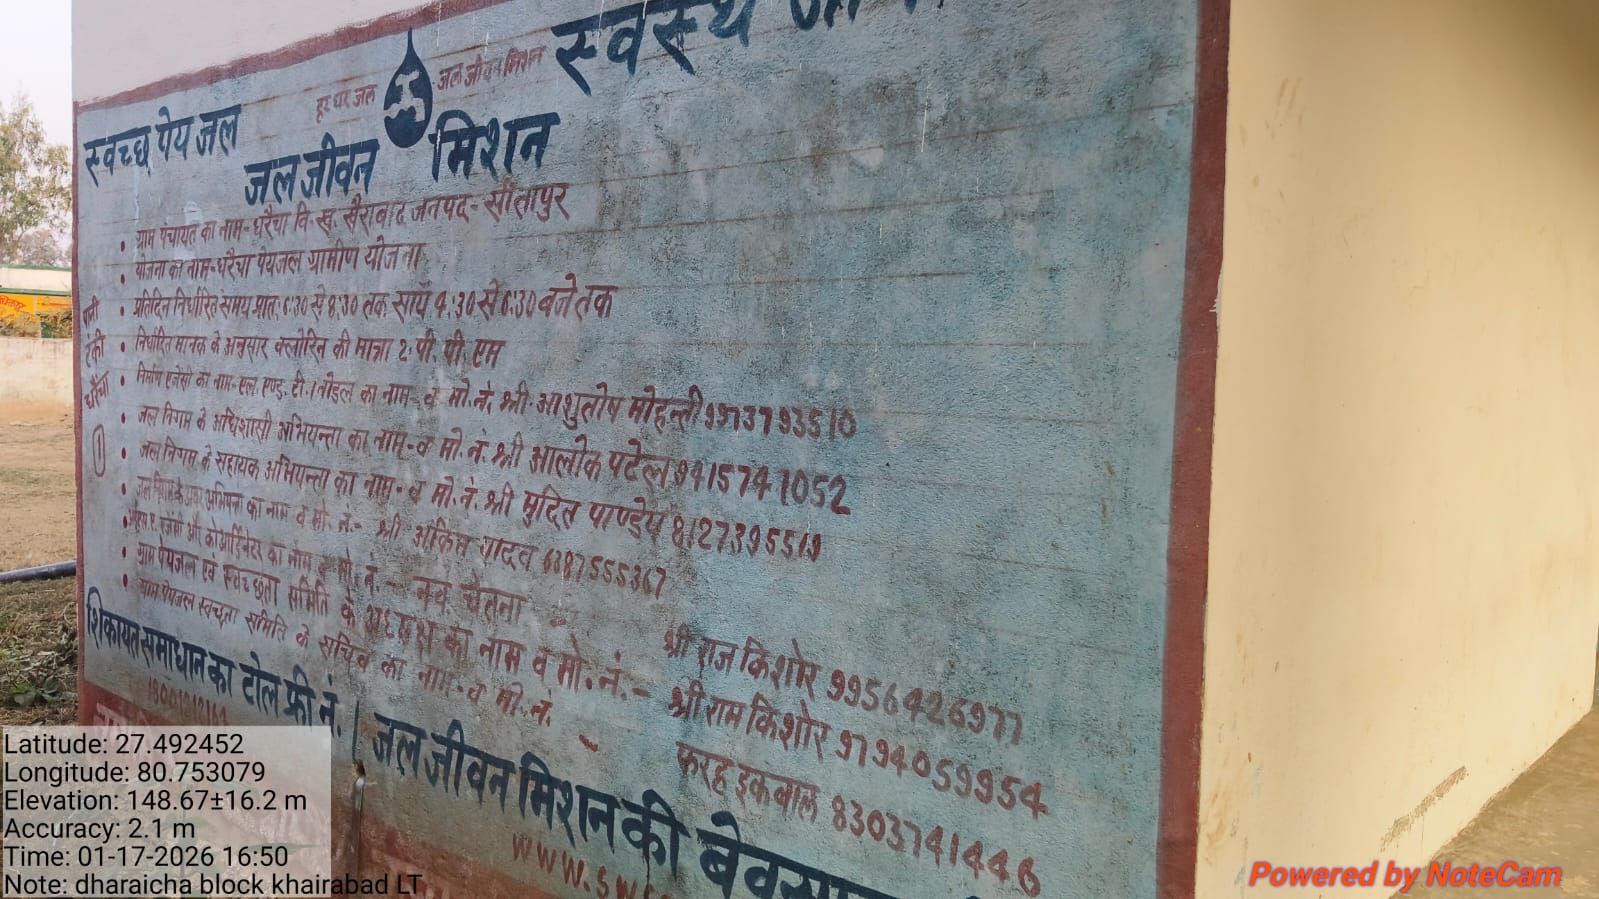 स्वस्थ
हर घर जल
जल जीवन मिशन
स्वच्छ पेय जल
जल जीवन मिशन
• ग्राम पंचायत का नाम- धरैचा वि. ख. खैराबाद जनपद- सीतापुर
• योजना का नाम- धरैचा पेयजल ग्रामीण योजना
• प्रतिदिन निर्धारित समय प्रातः 6:30 से 8:30 तक सायं 4:30 से 6:30 बजे तक
• निर्धारित मानक के अनुसार क्लोरिन की मात्रा 2. पी. पी. एम
• निर्माण एजेंसी का नाम- एल. एण्ड. टी. / नोडल का नाम- व मो. नं. श्री आशुतोष मोहन्ती 9937793510
• जल निगम के अधिशासी अभियन्ता का नाम- व मो. नं. श्री आलोक पटेल 9415741052
• जल निगम के सहायक अभियन्ता का नाम- व मो. नं. श्री मुदित पाण्डेय 8127395519
• जल निगम के अवर अभियन्ता का नाम व मो. नं.- श्री अंकित यादव
• आई.एस.ए. एजेंसी और कोआर्डिनेटर का नाम व मो. नं. - नव चेतना - श्री राज किशोर 9956426977
• ग्राम पेयजल एवं स्वच्छता समिति के अध्यक्ष का नाम व मो. नं.- श्री राम किशोर 9794059954
• ग्राम पेयजल स्वच्छता समिति के सचिव का नाम- व मो. नं. - फरह इकबाल 8303741446
पानी
टंकी
धरैचा
1
शिकायत समाधान का टोल फ्री नं. | जल जीवन मिशन की
www.sw
Latitude: 27.492452
Longitude: 80.753079
Elevation: 148.67±16.2 m
Accuracy: 2.1 m
Time: 01-17-2026 16:50
Note: dharaicha block khairabad LT
Powered by NoteCam